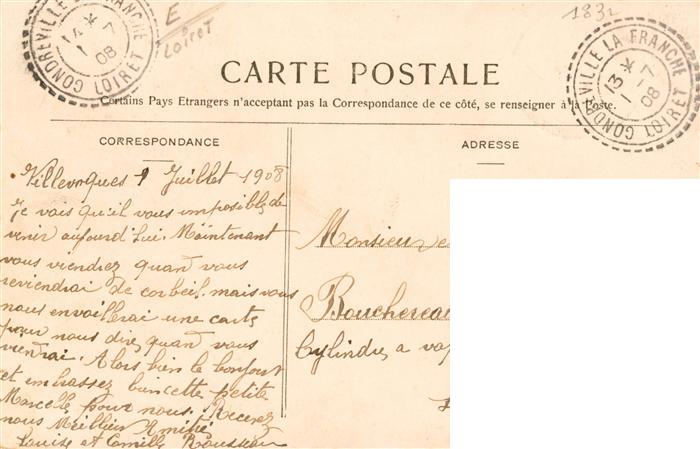 E
Loiret
1832
GONDREVILLE LA FRANCHE
14 *
1 - 7
08
LOIRET
GONDREVILLE LA FRANCHE
13 *
1 - 7
08
LOIRET
CARTE POSTALE
Certains Pays Etrangers n'acceptant pas la Correspondance de ce côté, se renseigner à la Poste.
CORRESPONDANCE
Villevoques 1 Juillet 1908
Je vais qu'il vous imposible de
venir aujourd'lui. Maintenant
vous viendrez quand vous
reviendrai de corbeil. mais vous
nous envaillerai une carte
pour nous dire quand vous
viendrai. Alors bien le bonjour
et embrassez bien cette petite
Marcelle pour nous. Recevez
nous Meillieur Amitié
Louise et Camille Rousseau
ADRESSE
Monsieur
Bouchereau
Cylindres a vap